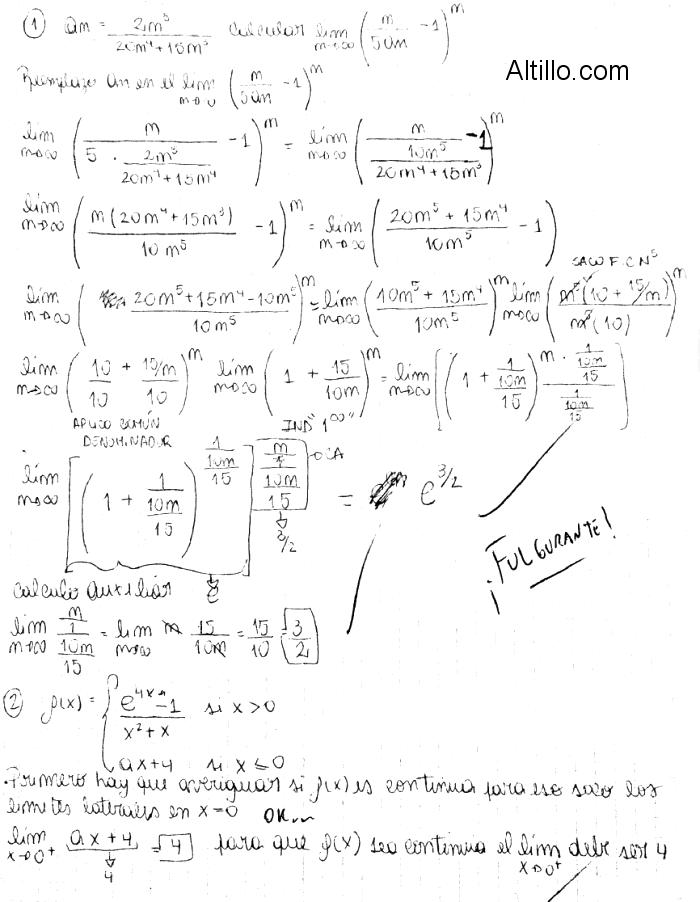 ① an = 2n⁵ / (20n⁴+15n³) calcular lim n→∞ (n/5an - 1)ⁿ
Altillo.com
Reemplazo an en el lim n→∞ (n/5an - 1)ⁿ
lim n→∞ (n / (5 · 2n⁵/(20n⁴+15n⁴)) - 1)ⁿ = lim n→∞ (n / (10n⁵/(20n⁴+15n³)) - 1)ⁿ
lim n→∞ (n(20n⁴+15n³)/10n⁵ - 1)ⁿ = lim n→∞ ((20n⁵+15n⁴)/10n⁵ - 1)
SACO F.C N⁵
lim n→∞ ((20n⁵+15n⁴-10n⁵)/10n⁵)ⁿ = lim n→∞ ((10n⁵+15n⁴)/10n⁵)ⁿ lim n→∞ (n⁵(10+15/n)/n⁵(10))ⁿ
lim n→∞ (10/10 + 15/n/10)ⁿ lim n→∞ (1 + 15/10n)ⁿ = lim n→∞ [(1 + 1/(10n/15))^(n · (1/(10n/15))/(1/(10n/15)))]
APLICO COMÚN
DENOMINADOR
IND "1^∞"
lim n→∞ [(1 + 1/(10n/15))^(1/(10n/15))]^((n/1)/(10n/15)) = e^(3/2)
→OCA
3/2
e
¡FULGURANTE!
calculo auxiliar
lim n→∞ (n/1)/(10n/15) = lim n→∞ n 15/10n = 15/10 = 3/2
② f(x) = { (e⁴ˣ-1)/(x²+x) si x>0
ax+4 si x≤0
Primero hay que averiguar si f(x) es continua para eso saco los
limites laterales en x=0 OK...
lim x→0⁺ ax+4 = 4 para que f(x) sea continua el lim x→0⁺ debe ser 4
4